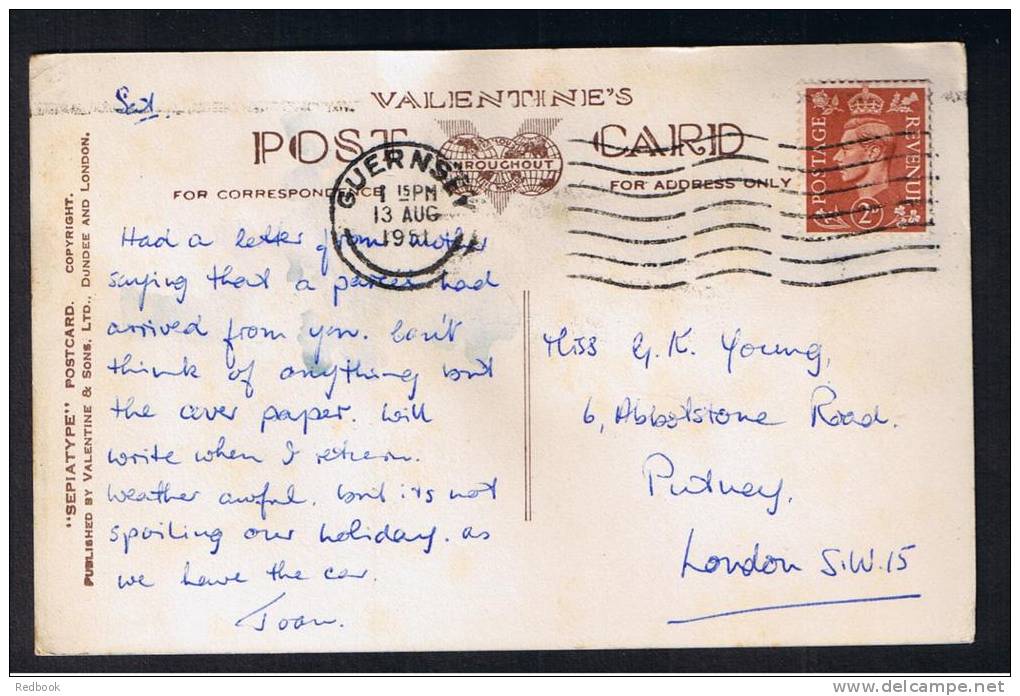 Sat
VALENTINE'S
POST CARD
THROUGHOUT
FOR CORRESPONDENCE
FOR ADDRESS ONLY
GUERNSEY
1 15 PM
13 AUG
1951
POSTAGE
REVENUE
2D
"SEPIATYPE" POSTCARD. COPYRIGHT.
PUBLISHED BY VALENTINE & SONS, LTD., DUNDEE AND LONDON.
Had a letter from mother
saying that a parcel had
arrived from you. Can't
think of anything but
the cover paper. Will
write when I return.
Weather awful. but its not
spoiling our holiday. as
we have the car.
Joan.
Miss G. K. Young,
6, Abbotstone Road.
Putney,
London S.W.15
Redbook
delcampe.net